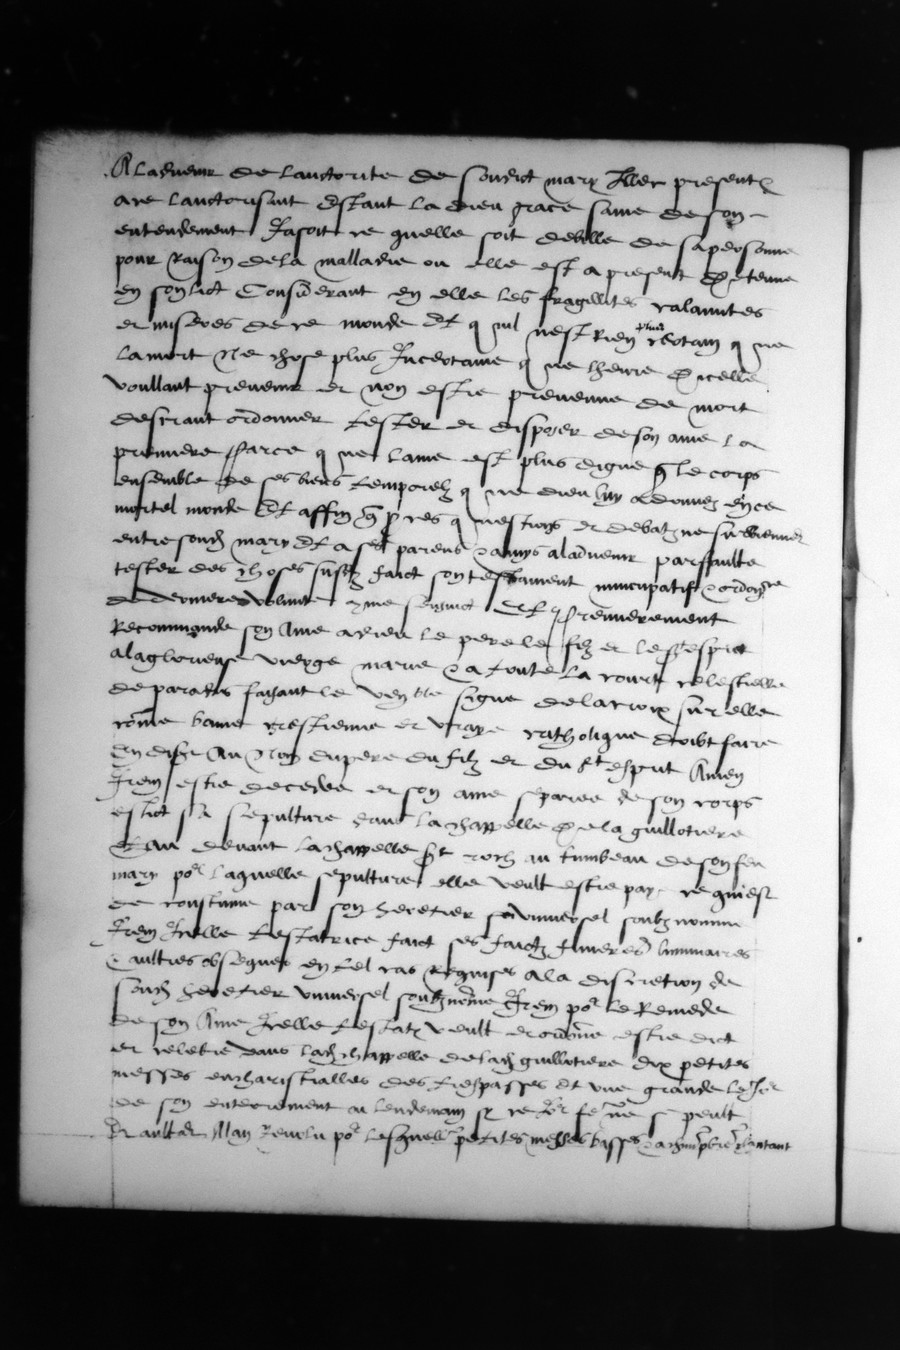 A ladvenir de lauctorite de sondict mary Illec present &
ace lauctorisant Estant la dieu grace saine de son
entendement Jasoit ce quelle soit debille de sa personne
pour raison de la malladie ou elle est a present detenue
en son lict Considerant en elle les fragillites calamites
et miseres de ce monde Et q nil nest Rien plus certain q ne
la mort Ne chose plus Incertaine q ne lheure dicelle
voullant prevenir et non estre prevenue de mort
desirant ordonner tester et disposer de son ame la
premiere Parce q ne lame est plus digne q le corps
ensemble de ses biens temporelz q ne dieu luy a donnez en ce
mortel monde Et affin q questions et debatz ne surviennent
entre sond mary Et a ses parens & amys aladvenir par faulte
tester des choses susd faict son testament nuncupatif & ordonce
de derniere volunte come sensuict Et Premierement
Recommande son Ame a dieu le pere le filz et le st esprit
a la glorieuse vierge marie & a toute la court celestielle
de paradis faisant le ven ble signe de la croix sur elle
come bonne crestienne et vraye catholique doibt faire
En disant Au Nom du pere du filz et du st esprit Amen
Item estre decedee et son ame separee de son corps
eslict sa sepulture dans la chappelle de la guillotiere
Et au devant la chappelle st roch au tumbeau de son feu
mary por laquelle sepulture elle veult estre paye ce qui est
de coustume par son heretier universel soubz nomme
Item Icelle testatrice faict ses faictz funeres luminaires
& aultres obseques en tel cas Requises a la discretion de
sond heretier universel soubznome Item por le Remede
de son Ame Icelle testatx veult et ordonne estre dict
et celebre dans lad chappelle de lad guillotiere dix petites
messes eucharistialles des trespasses et une grande le Jor
de son enterrement au lendemain sy ce Jor se peult
Et aultre por lesquelles petites messes basses